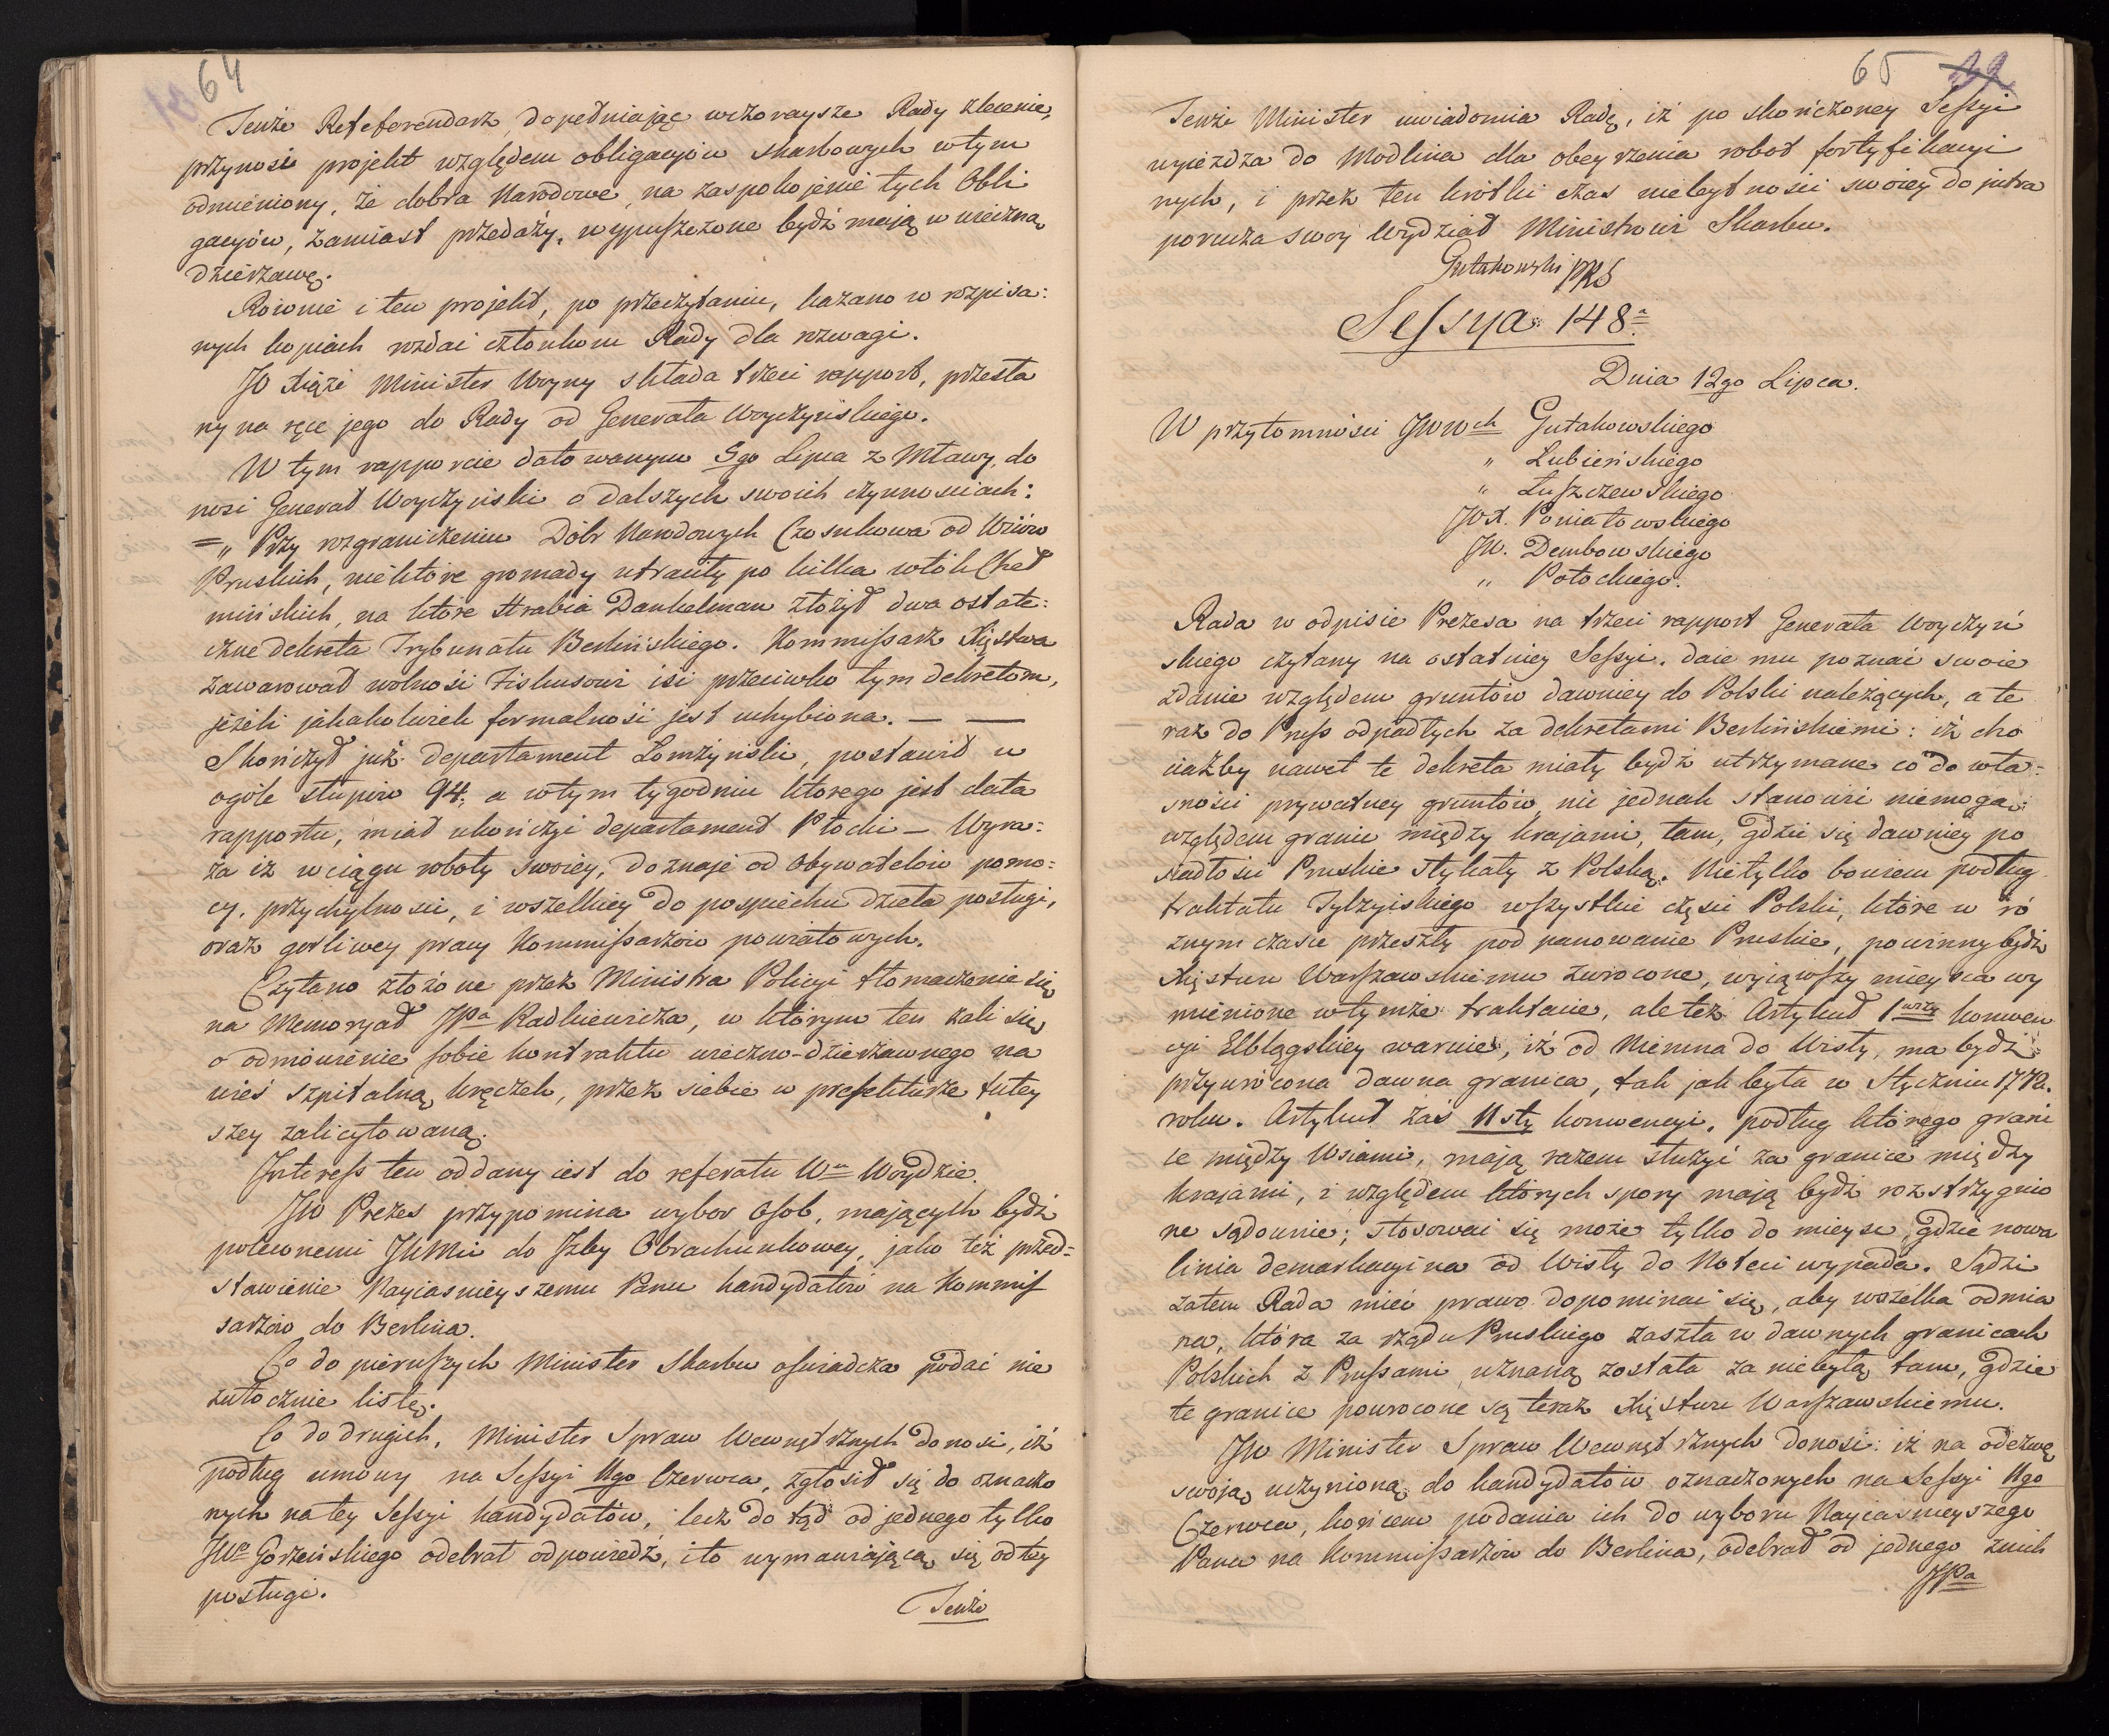 64
Tenże Reteferendarz, dopełniając wczoraysze Rady zlecenie,
przynosi projekt względem obligacyiow skarbowych w tym
odmieniony, że dobra Narodowe, na zaspokojenie tych Obli
gacyów, zamiast przedaży, wypuszczone bydź mają w wieczną
dzierżawę.
Rownie i ten projekt, po przeczytaniu, kazano w rozpisa:
nych kopiach rozdać członkom Rady dla rozwagi.
JO Xiąże Minister Woyny składa trzeci rapport, przesła
ny na ręce jego do Rady od Generała Woyczyńskiego.
W tym rapporcie datowanym 5go Lipca z Mławy, do
nosi Generał Woyczyński o dalszych swoich czynnosciach:
=„ Przy rozgraniczeniu Dóbr Narodowych Czosnkowa od Wsiów
Pruskich, niektóre gromady utraciły po kilka włók Cheł
mińskich, na które Hrabia Dankelman złożył dwa ostate:
czne dekreta Trybunału Berlińskiego. Kommissarz Xięstwa
zawarował wolność Fiskusowi iść przeciwko tym dekretom,
jeżeli jakakolwiek formalność jest uchybiona. — —
Skończył już departament Łomżyński, postawił w
ogóle słupów 94; a w tym tygodniu którego jest data
rapportu, miał ukończyć departament Płocki — Wyra:
ża iż w ciągu roboty swoiey, doznaje od Obywatelow pomo:
cy, przychylności, i wszelkiey do pospiechu dzieła posługi,
oraz gorliwey pracy Kommissarzow powiatowych.
Czytano złożone przez Ministra Policyi tłomaczenie się
na Memoryał JPa Radkiewicza, w którym ten żali się
o odmówienie sobie kontraktu wieczno-dzierżawnego na
wieś szpitalną Kręczek, przez siebie w prefekturze tutey
szey zalicytowaną.
Interess ten oddany iest do referatu Wo Woydzie.
JW Prezes przypomina wybor Osob, mających bydź
poleconemi JKMci do Izby Obrachunkowey, jako też przed=
stawienie Nayiasnieyszemu Panu kandydatów na Kommis
sarzow do Berlina.
Co do pierwszych Minister Skarbu oświadcza podać nie
zwłocznie listę.
Co do drugich, Minister Spraw Wewnętrznych donosi, iż
podług umowy na Sessyi 11go Czerwca, zgłosił się do oznaczo
nych na tey Sessyi kandydatów, lecz do tąd od jednego tylko
JWo Gorzeńskiego odebrał odpowiedź, i to wymawiającą się od tey
posługi.
Tenże
65
Tenże Minister uwiadomia Radę, iż po skończoney Sessyi
wyieżdża do Modlina dla obeyrzenia robot fortyfikacyi
nych, i przez ten krótki czas niebytności swoiey do jutra
porucza swoy Wydział Ministrowi Skarbu.
Gutakowski PRS
Sessya 148a
Dnia 12go Lipca.
W przytomności JWWch Gutakowskiego
„ Lubieńskiego
„ Łuszczewskiego
JOX. Poniatowskiego
JW. Dembowskiego
„ Potockiego.
Rada w odpisie Prezesa na trzeci rapport Generała Woyczyń
skiego czytany na ostatniey Sessyi, daie mu poznać swoie
zdanie względem gruntów dawniey do Polski należących, a te
raz do Pruss odpadłych za dekretami Berlińskiemi: iż cho
ciażby nawet te dekreta miały bydź utrzymane co do wła:
sności prywatney gruntów, nic jednak stanowić niemogą:
względem granic między krajami, tam, gdzie się dawniey po
siadłości Pruskie stykały z Polską. Nietylko bowiem podług
traktatu Tylzyiskiego wszystkie części Polski, które w ró
żnym czasie przeszły pod panowanie Pruskie, powinny bydź
Xięstwu Warszawskiemu zwrocone, wyiąwszy mieysca wy
mienione w tymże traktacie, ale też Artykuł 1wszy konwen
cyi Elblągskiey waruie, iż od Niemna do Wisły, ma bydź
przywrócona dawna granica, tak jak była w Styczniu 1772.
roku. Artykuł zaś 11sty konwencyi, podług którego grani
ce między Wsiami, mają razem służyć za granice między
krajami, i względem których spory mają bydź rozstrzygnio
ne sądownie; stosować się może tylko do mieysc, gdzie nowa
linia demarkacyina od Wisły do Noteci wypada. Sądzi
zatem Rada mieć prawo dopominać się, aby wszelka odmia
na, która za rządu Pruskiego zaszła w dawnych granicach
Polskich z Prussami, uznaną została za niebyłą tam, gdzie
te granice powrocone są teraz Xięstwu Warszawskiemu.
JW Minister Spraw Wewnętrznych donosi: iż na odezwę
swoją uczynioną do kandydatów oznaczonych na Sessyi 11go
Czerwca, końcem podania ich do wyboru Nayiasnieyszego
Pana na Kommissarzów do Berlina, odebrał od jednego z nich
JPa